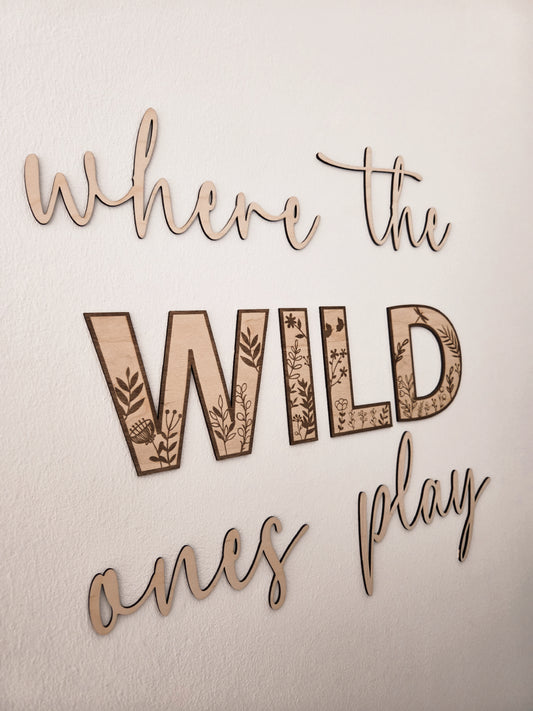 where the
WILD
ones play